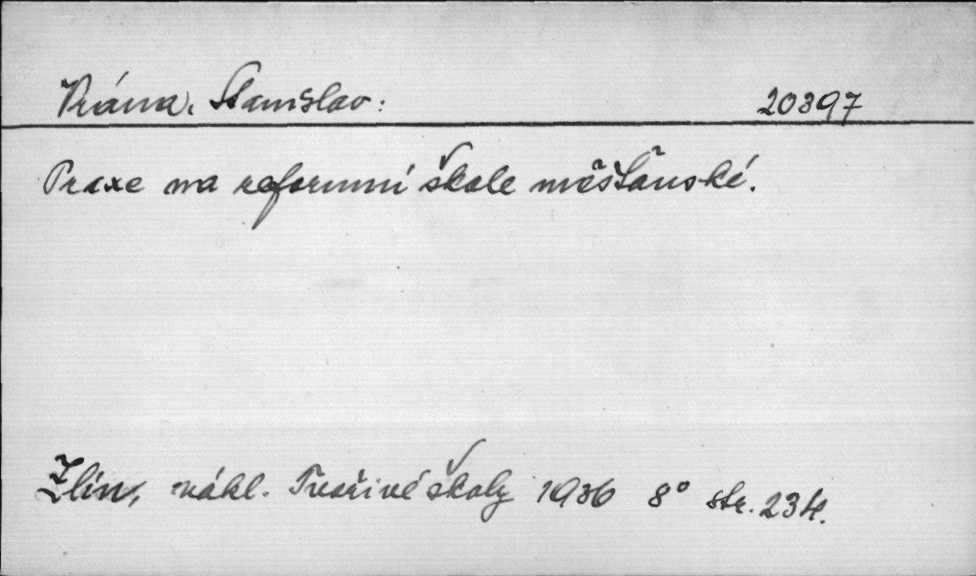 Vrána, Stanislav: 20397
Praxe na reformní škole měšťanské.
Zlín, nákl. Tvořivé školy 1936 8° str. 234.